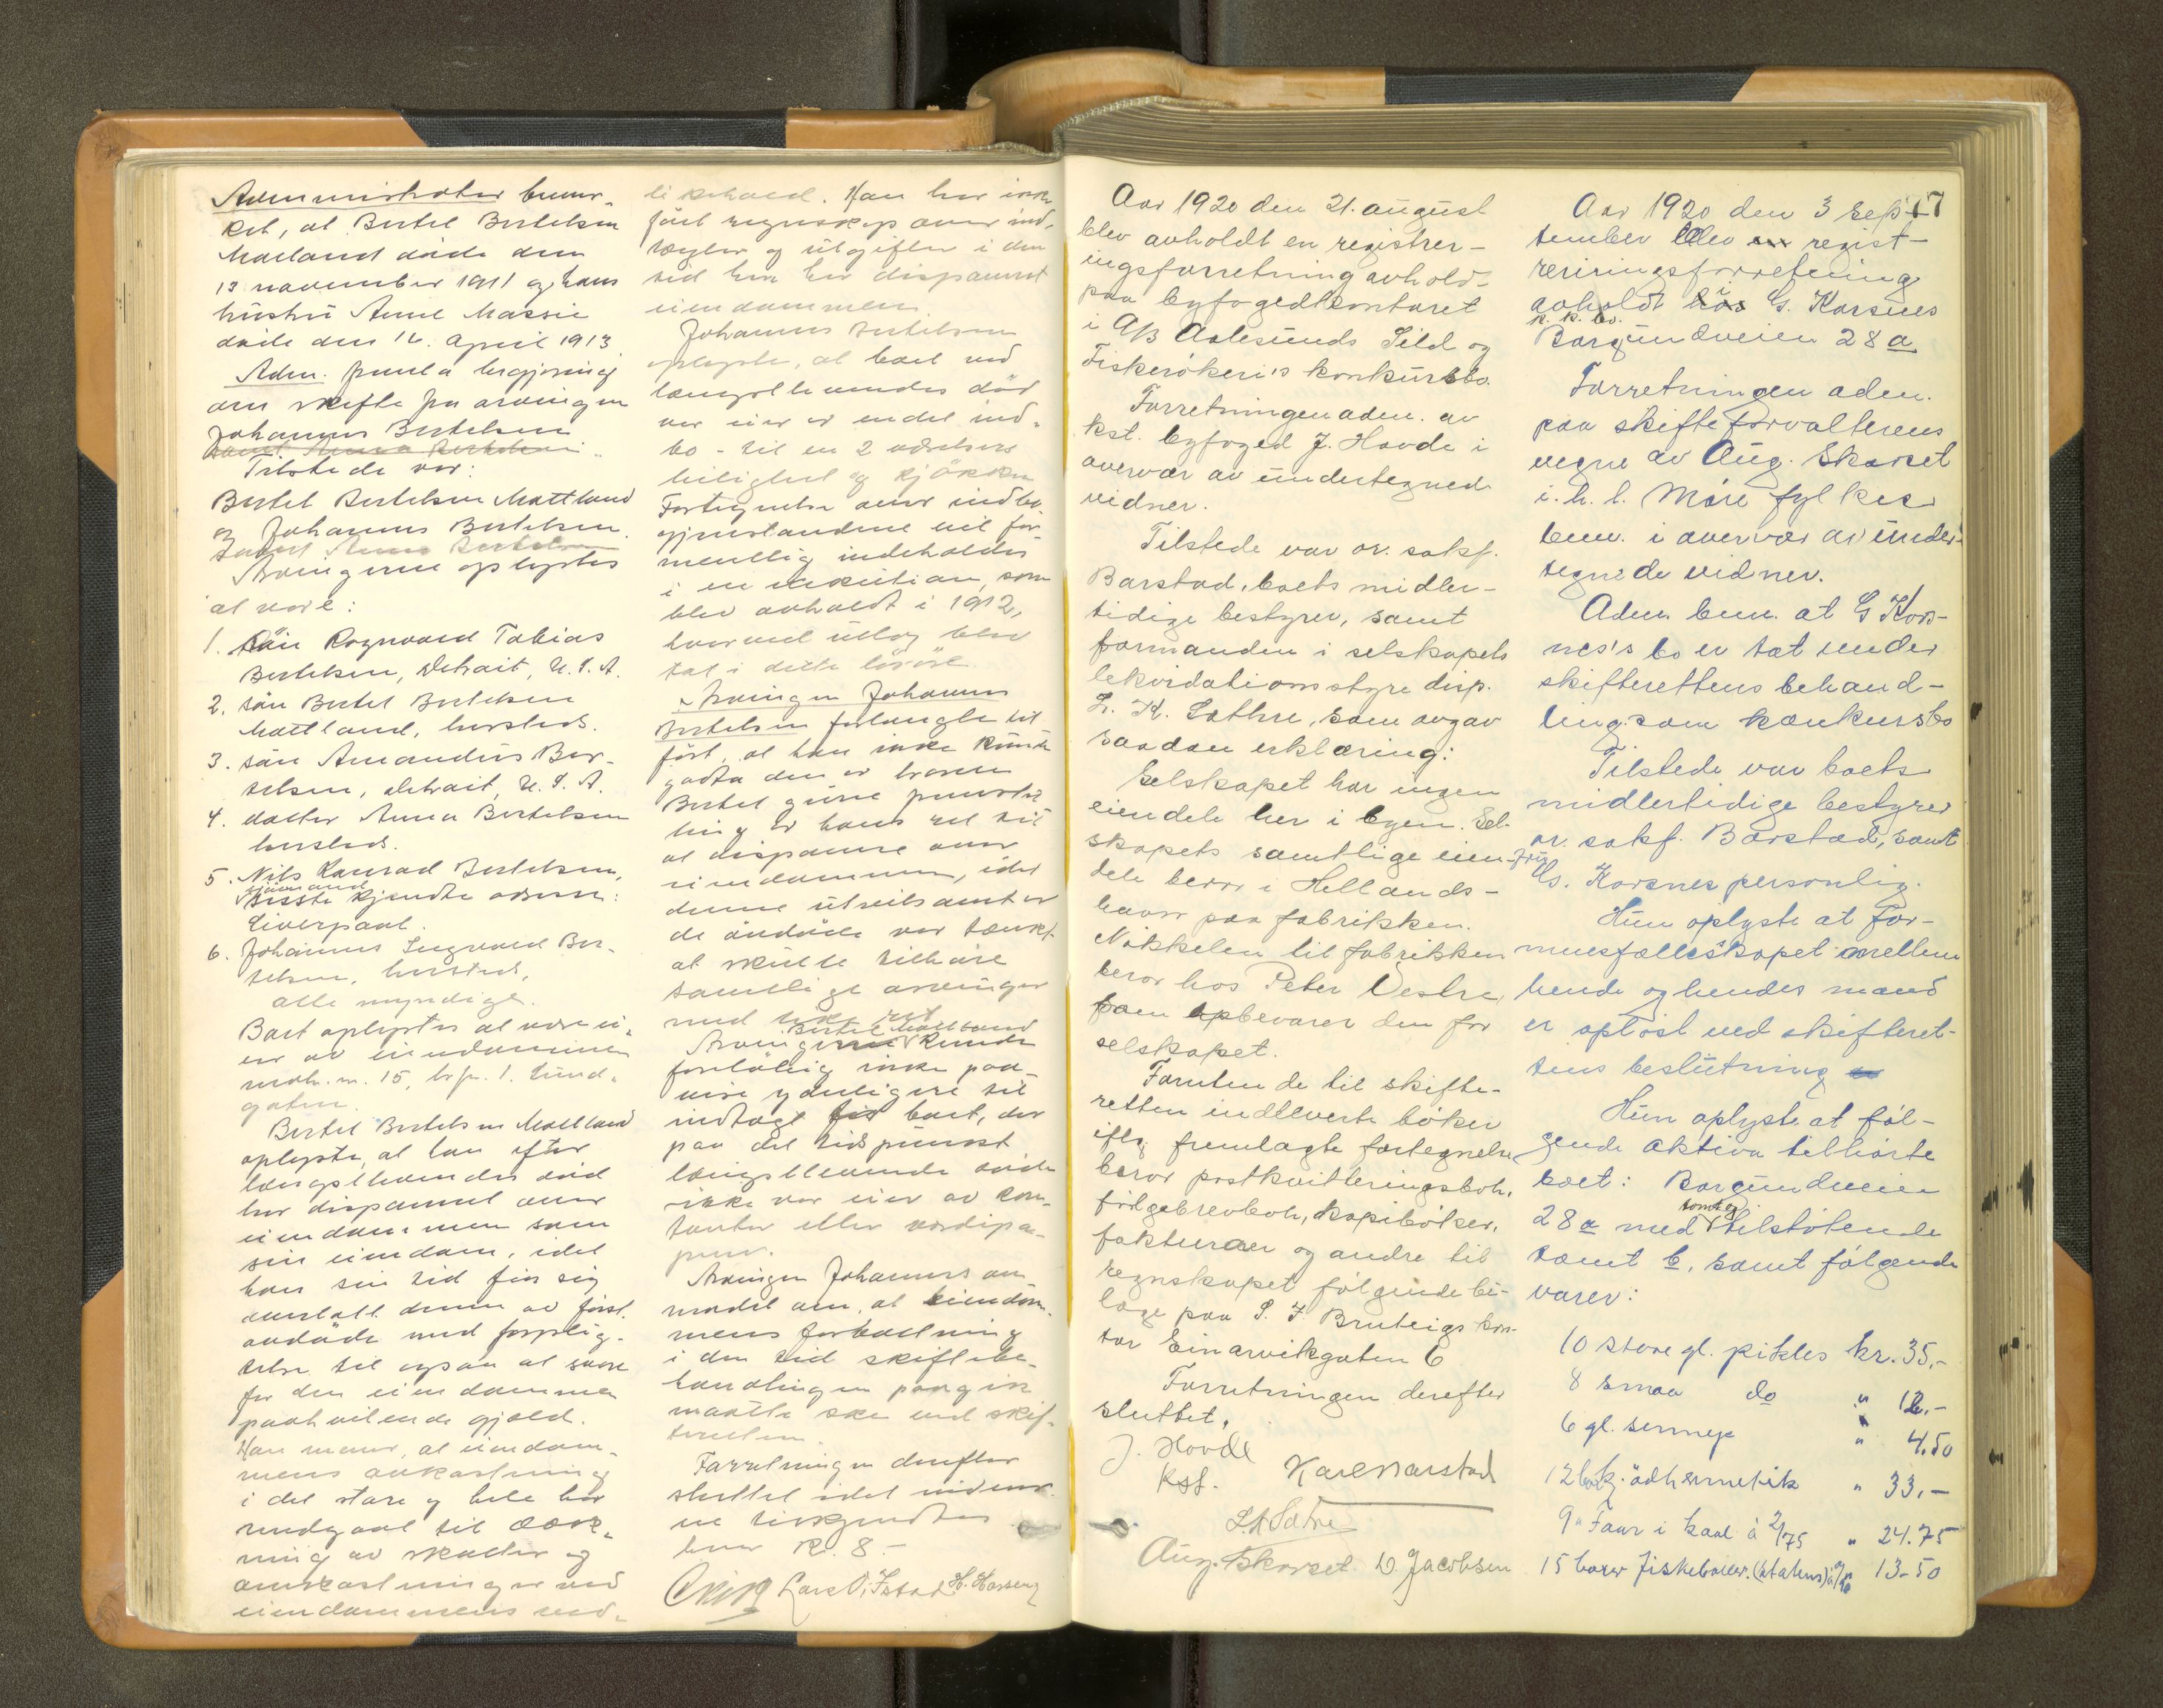 Administrator bemer-
ket, at Bertel Bertelsen
Matland döde den
13 november 1911 og hans
hüstrü Anne Massie
döde den 12. April 1913
Adm. paa begjæring
om skifte fra arvingen
Johannes Bertelsen
samt Anna Bertelsen
Tilstede var:
Bertel Bertelsen Mattland
og Johannes Bertelsen.
samt Anna Bertelsen
Arvingerne oplystes
at være:
1. sön Rognvald Tobias
Bertelsen, Detroit, U.S.A.
2. sön Bertel Bertelsen
Mattland, hersteds.
3. sön Amandüs Ber-
telsen, Detroit, U.S.A.
4. datter Anna Bertelsen
hersteds.
5. Nils Konrad Bertelsen,
sjömand
sisste kjendte adresse:
Liverpool.
6. Johannes Ingvald Ber-
telsen, hersteds,
alle myndige.
Boet oplystes at være ei-
er av eiendommen
matr. nr. 15, brf. 1. Sund-
gaten.
Bertel Bertelsen Mattland
oplyste, at han efter
længstlevendes död
har disponert over
eiendommen som
sin eiendom, idet
han sin tid fik sig
overlatt denne av först
avdöde med forplig-
telse til ogsaa at svare
for den eiendommen
paahvilende gjæld.
Han mener, at eiendom-
mens avkastning
i det store og hele har
medgaat til dæk-
ning av skatter og
omkostninger ved
eiendommens ved-
likehold. Han har ikke
fört regnskap over ind-
tægter og ütgifter i den
tid han har disponert
eiendommen
Johannes Bertelsen
oplyste, at boet ved
længstlevendes död
var eier av endel ind-
bo - til en 2 værelsers
leilighet og kjökken
Fortegnelse over indbo-
gjenstandene vil for-
mentlig indeholdes
i en exekütion, som
blev avholdt i 1912,
hvorved ütlæg blev
tat i dette lösöre
Arvingen Johannes
Bertelsen forlangte til-
fört, at han ikke kunde
godta den av broren
Bertel givne fremstil-
ling av hans ret til
at disponere over
eiendommen, idet
denne
de avdöde var tænkt
at skülle tilhöre
samtlige arvinger
med like ret
Bertel Mattland
Arvingerne kunde
foreløbig ikke paa-
vise yderligere til
indtægt for boet, der
paa det tidspünkt
længstlevende döde
ikke var eier av kon-
tanter eller værdipa-
pirer.
Arvingen Johannes an-
modet om, at eiendom-
mens forvaltning
i den tid skiftebe-
handlingen paagik
maatte ske ved skif-
teretten.
Forretningen derefter
sluttet idet vidner-
ne tilkjendtes
hver kr. 8.-
Lars O. Istad H. Hassen
Aar 1920 den 21. august
blev avholdt en registrer-
ingsforretning avhold-
paa byfogedkontoret
i A/B Aalesunds Sild og
Fiskerökeri's konkursbo.
Forretningen adm. av
kst. byfoged J. Hovde i
overvær av undertegnede
vidner.
Tilstede var or. sakf.
Barstad, boets midler-
tidige bestyrer, samt
formanden i selskapets
likvidationsstyre disp.
L. K. Sathre, som avgav
saadan erklæring:
Selskapet har ingen
eiendele her i byen. Sel-
skapets samtlige eien-
dele beror i Hellands-
havn paa fabrikken.
Nökkelen til fabrikken
beror hos Peter Vestre,
som opbevarer den for
selskapet.
Foruten de til skifte-
retten indleverte böker
iflg. fremlagte fortegnelse
beror postkvitteringsbok,
fölgebrevbok, kopiböker,
fakturaer og andre til
regnskapet fölgende bi-
lage paa S. J. Bruteigs kon-
tor Einarvikgaten 6
Forretningen derefter
sluttet.
J. Hovde
kst.
Kare Barstad
L K Satre
Aug. Skorset D Jacobsen
17
Aar 1920 den 3 sep-
tember blev en regist-
reringsforretning
avholdt hos i G. Korsnes
k. k. bo.
Borgundveien 28 a
Forretningen adm.
paa skifteforvalterens
vegne av Aug. Skorset
i. h. l. Möre fylkes
bem. i overvær av under-
tegnede vidner.
Adm. bem. at G Kors-
nes's bo er tat under
skifterettens behand-
ling som konkursbo
Tilstede var boets
midlertidige bestyrer
or. sakf. Barstad, samt
fru
Gs. Korsnes personlig.
Hun oplyste at for-
muesfællesskapet mellem
hende og hendes mand
er oplöst ved skifteret-
tens beslutning
Hun oplyste at föl-
gende aktiva tilhörte
boet: Borgundveien
tomt og
28 a med tilstötende
tomt b, samt fölgende
varer:
10 store gl. pikles kr. 35,-
8 smaa do " 12.-
6 gl. sennep " 4.50
12 bok. ödhermetik " 33.-
9 " Faar i kaal à 2/75 " 24.75
15 boxer fiskeboller. (statens) à /90 13-50